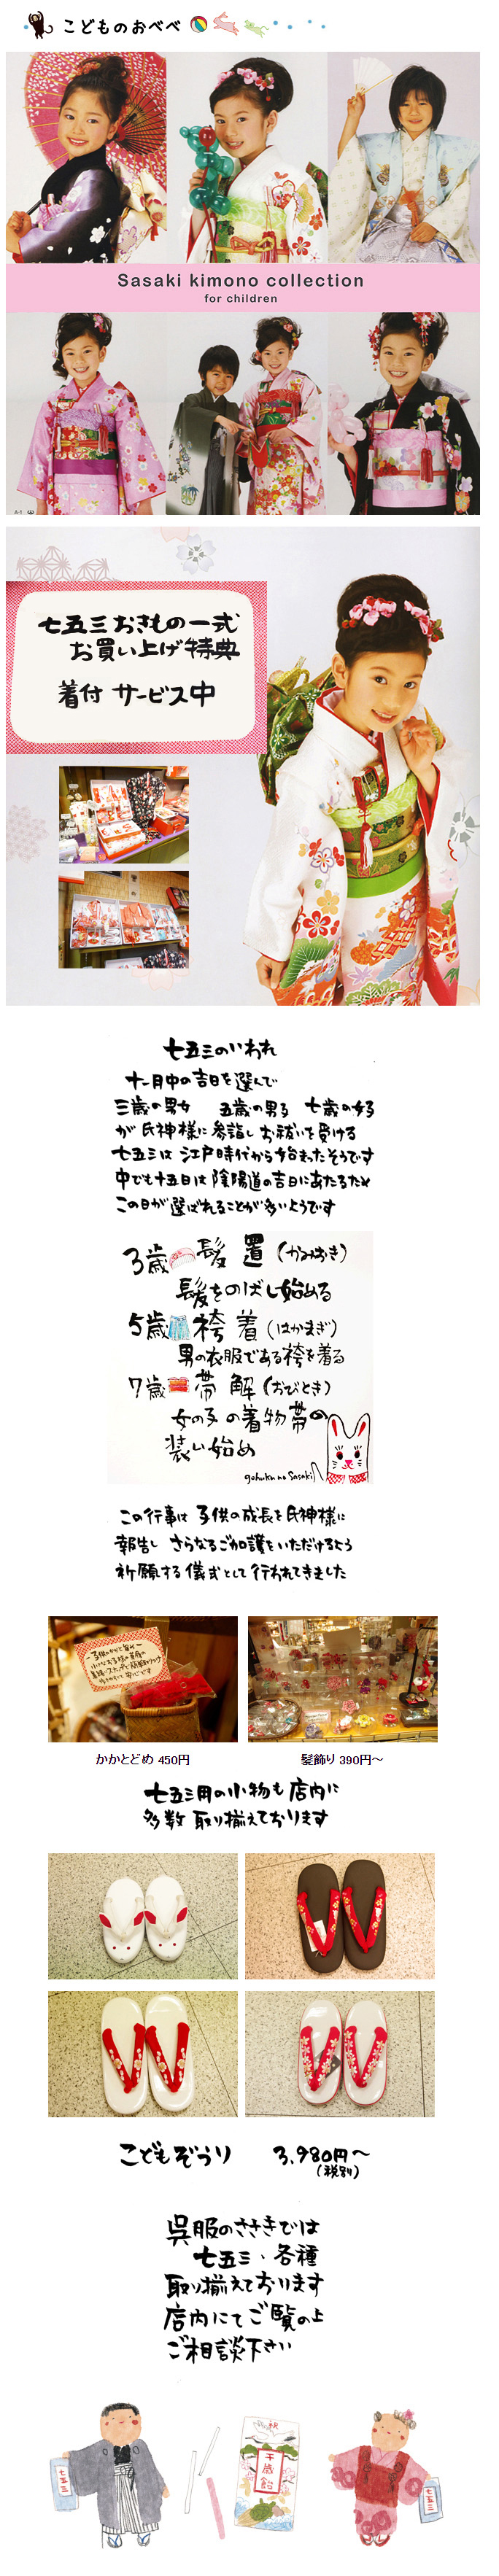 こどものおべべ
Sasaki kimono collection
for children
七五三おきもの一式
お買い上げ特典
着付 サービス中
七五三のいわれ
十一月中の吉日を選んで
三歳の男女 五歳の男子 七歳の女子
が氏神様に参詣しお祓いを受ける
七五三は江戸時代から始まったそうです
中でも十五日は陰陽道の吉日にあたるため
この日が選ばれることが多いようです
3歳 髪置(かみおき)
髪をのばし始める
5歳 袴着(はかまぎ)
男の衣服である袴を着る
7歳 帯解(おびとき)
女の子の着物帯の
装い始め
gohuku no Sasaki
この行事は子供の成長を氏神様に
報告しさらなるご加護をいただけるよう
祈願する儀式として行われてきました
かかとどめ 450円
髪飾り 390円～
七五三用の小物も店内に
多数取り揃えております
こどもぞうり 3,980円～
(税別)
呉服のささきでは
七五三、各種
取り揃えております
店内にてご覧の上
ご相談下さい
七五三
祝
千歳飴
七五三